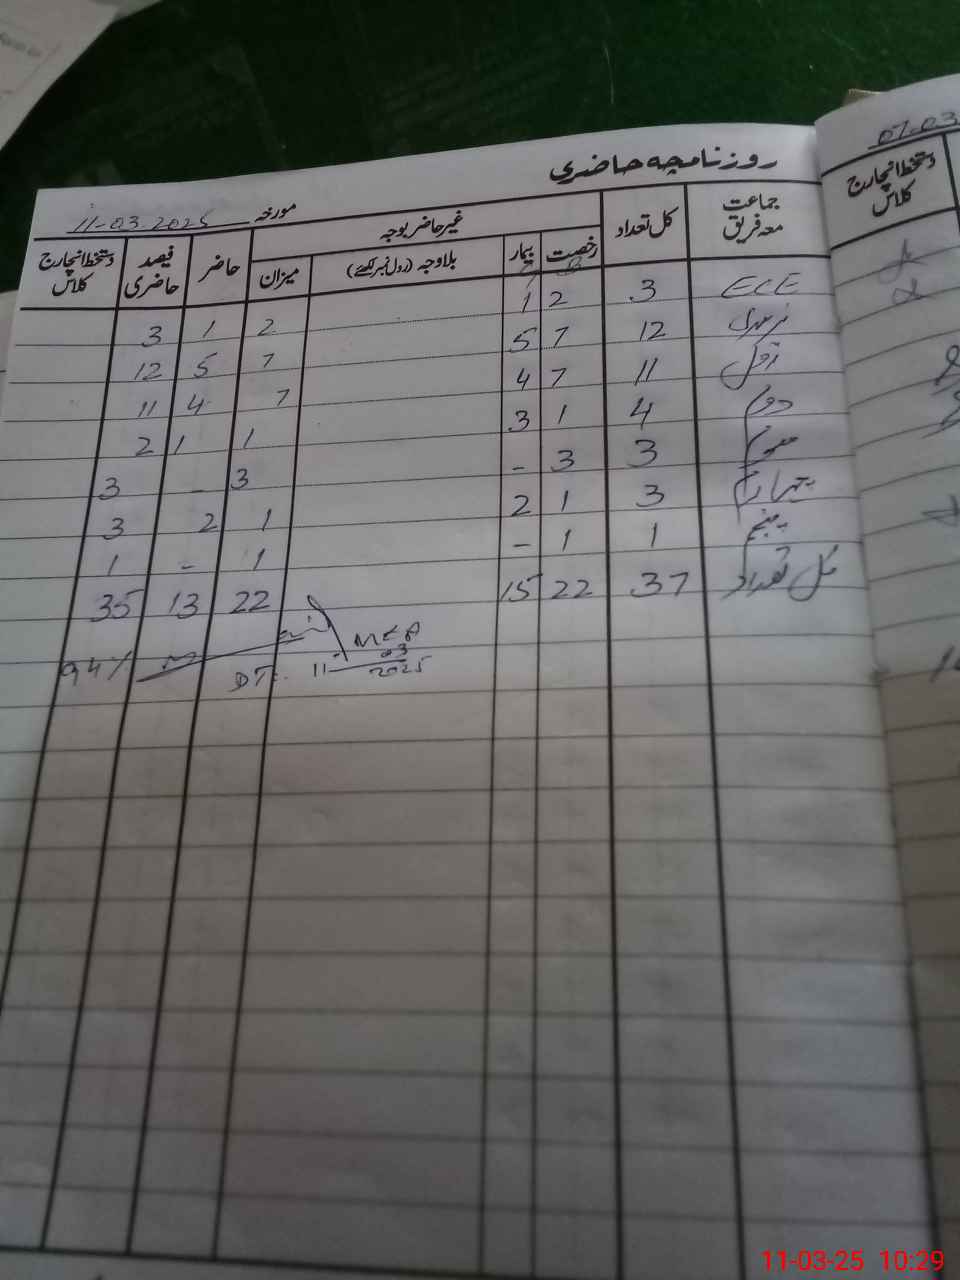 روزنامچہ حاضری
مورخہ 11-03-2025
جماعت معہ فریق کل تعداد غیر حاضر بوجہ حاضر فیصد حاضری دستخط انچارج کلاس
رخصت بیمار بلاوجہ (رول نمبر لکھئے) میزان
ECE 3 2 1 2 1 3
نرسری 12 7 5 7 5 12
اول 11 7 4 7 4 11
دوم 4 1 3 1 1 2
سوم 3 3 - 3 - 3
چہارم 3 1 2 1 2 3
پنجم 1 1 - 1 - 1
کل تعداد 37 22 15 22 13 35
94%
MEA
DTE. 11-03-2025
07-03
دستخط انچارج کلاس
11-03-25 10:29